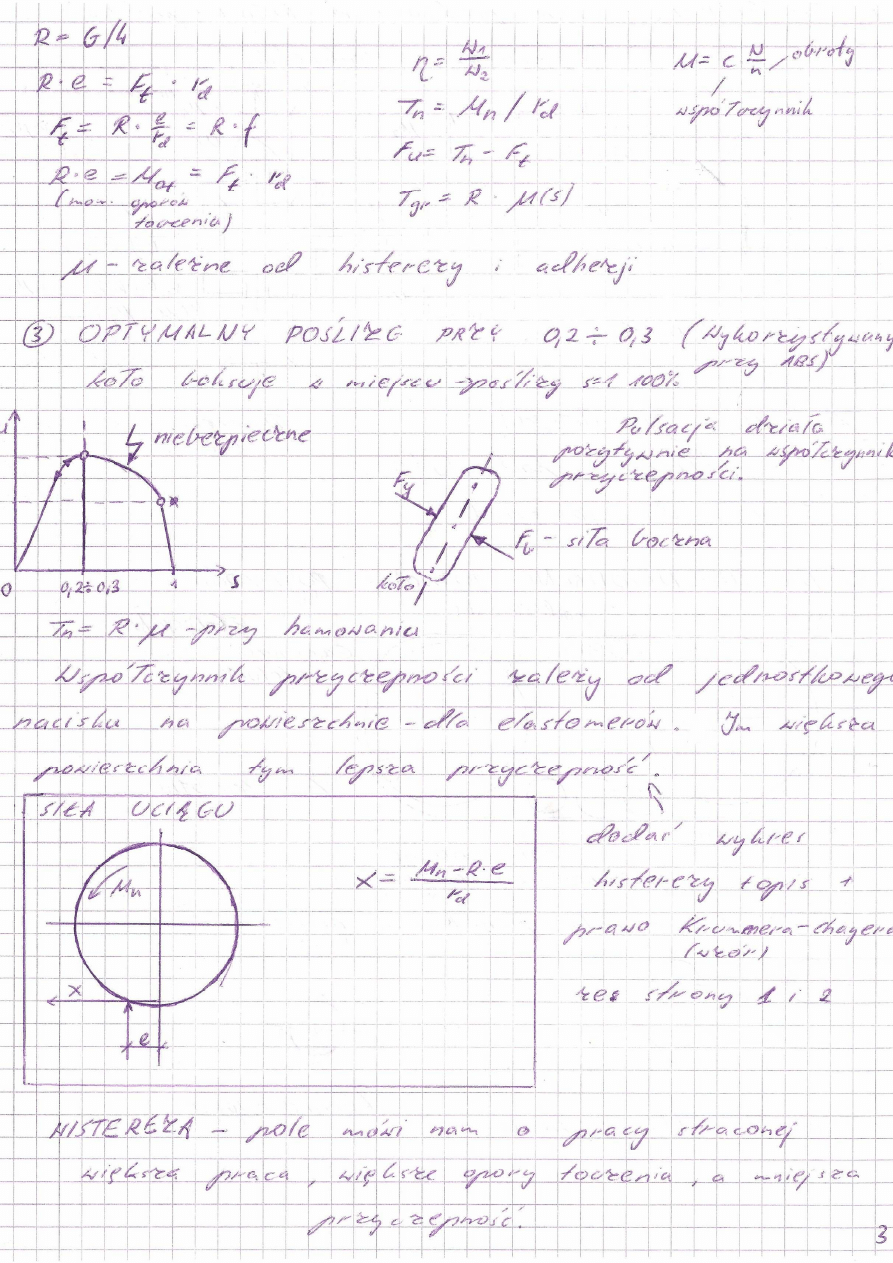 R = G/4
R · e = Ft · rd
Ft = R · e/rd = R · f
R · e = Mot = Ft · rd
(mom. oporów
toczenia)
η = W1/W2
Tn = Mn / rd
Fu = Tn - Ft
Tgr = R · μ(s)
M = c N/n obroty
współczynnik
μ - zależne od histerezy i adhezji
③ OPTYMALNY POŚLIZG PRZY 0,2 ÷ 0,3 (wykorzystywany
przy ABS)
koło boksuje w miejscu - poślizg s=1 100%
niebezpieczne
0
0,2÷0,3
1
s
Pulsacja działa
pozytywnie na współczynnik
przyczepności.
Fy
Fb - siła boczna
koło
Tn = R · μ - przy hamowaniu
Współczynnik przyczepności zależy od jednostkowego
nacisku na powierzchnie - dla elastomerów. Im większa
powierzchnia tym lepsza przyczepność.
SIŁA UCIĄGU
Mn
X = (Mn - R·e)/rd
X
e
dodać wykres
histerezy + opis 1
prawo
(wzór)
strony 1 i 2
HISTEREZA - pole mówi nam o pracy straconej
większa praca, większe opory toczenia, a mniejsza
przyczepność.
3